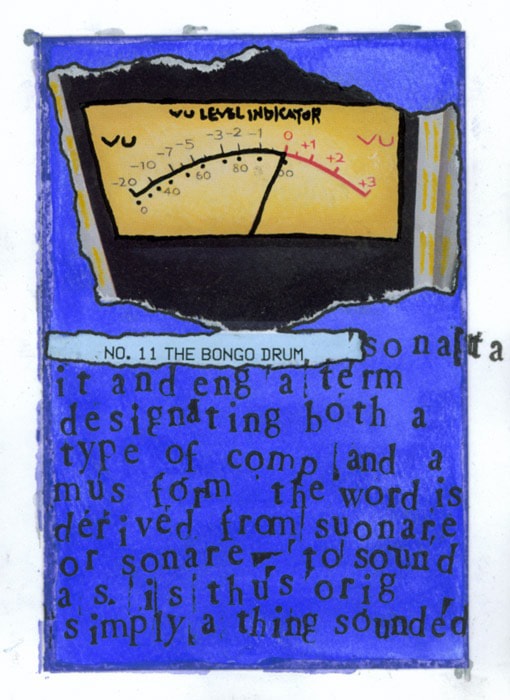 VU LEVEL INDICATOR
VU VU
-20 -10 -7 -5 -3 -2 -1 0 +1 +2 +3
0 40 60 80 100
NO. 11 THE BONGO DRUM
sonata
it and eng a term
designating both a
type of comp and a
mus form the word is
derived from suonare
or sonare to sound
a s. is thus orig
simply a thing sounded